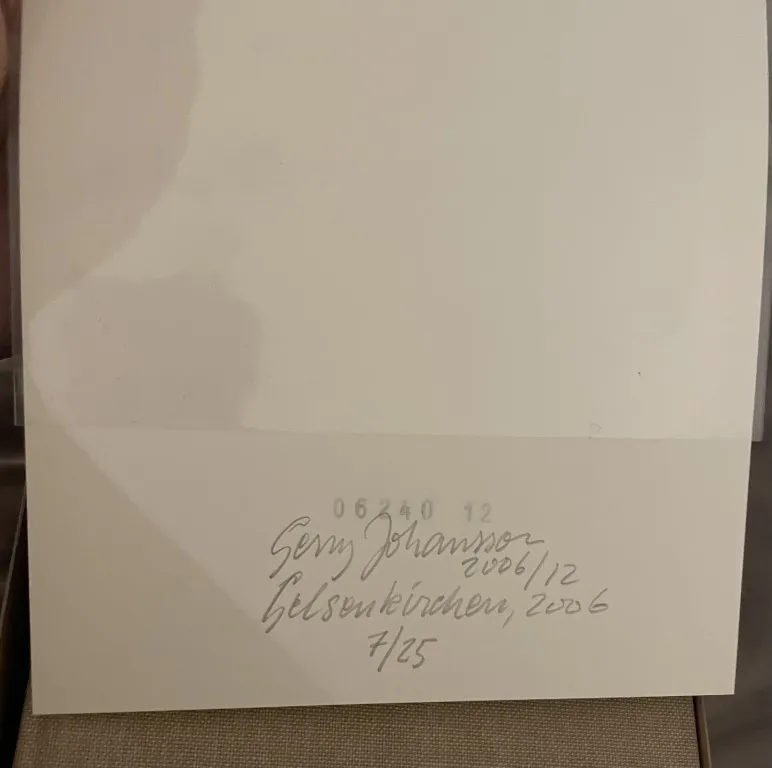 06240 12
Gerry Johansson
2006/12
Gelsenkirchen, 2006
7/25